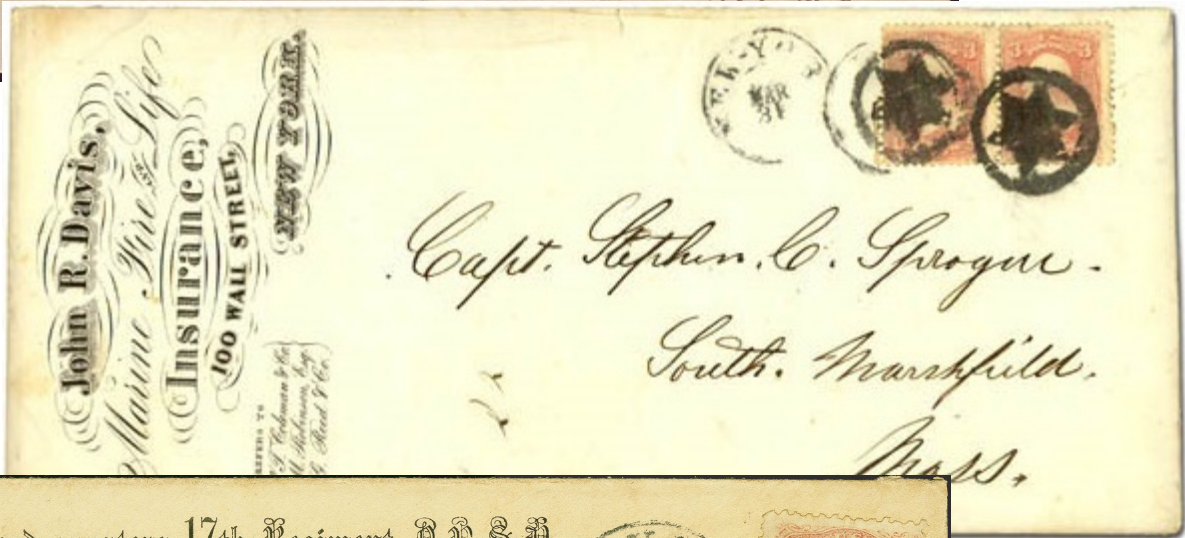 John R. Davis,
Marine Fire AND Life
Insurance,
100 WALL STREET,
NEW YORK.
REFERS TO
Coleman & Co
Robinson, Esq.
Reed & Co.
MAR
3
3
Capt. Stephen. C. Sprague.
South. Marshfield.
Mass.
17th Regiment